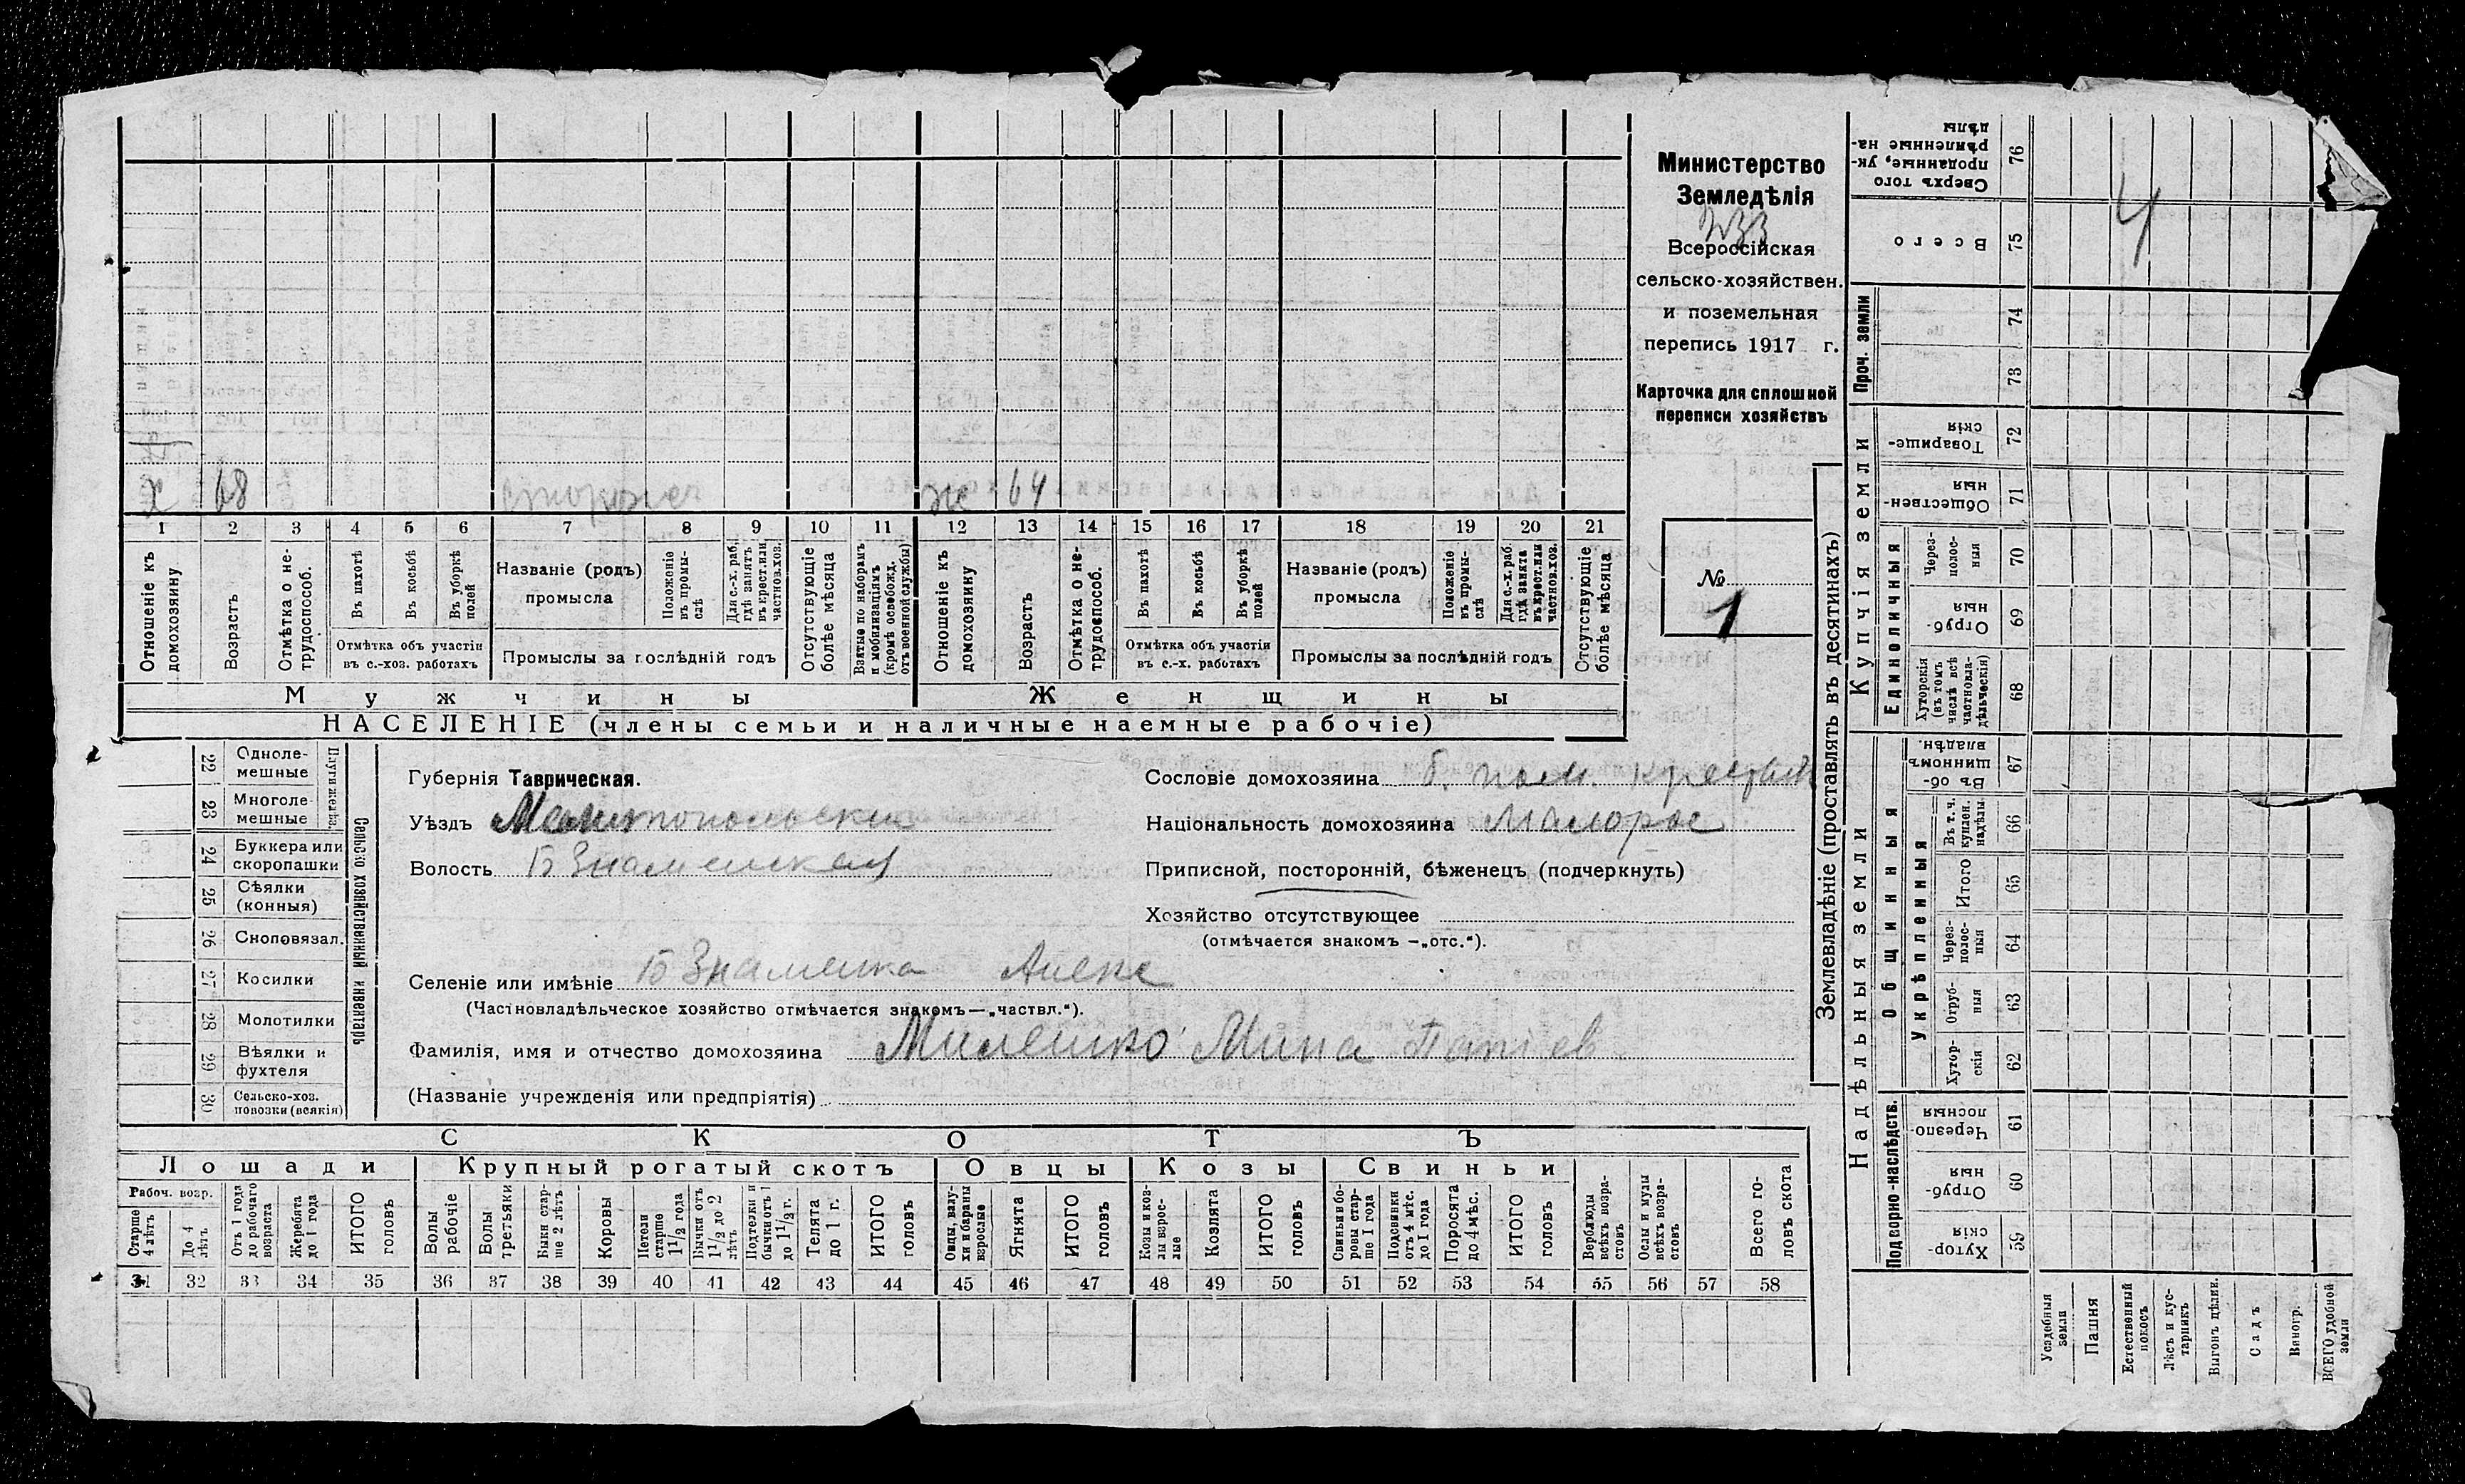 Министерство
Земледѣлія
233
Всероссійская
сельско-хозяйствен.
и поземельная
перепись 1917 г.
Карточка для сплошной
переписи хозяйствъ
№
1
х 68 сторожъ ж 64
1 2 3 4 5 6 7 8 9 10 11 12 13 14 15 16 17 18 19 20 21
Отношеніе къ домохозяину
Возрастъ
Отмѣтка о не-трудоспособ.
Въ пахотѣ
Въ косьбѣ
Въ уборкѣ полей
Отмѣтка объ участіи
въ с.-хоз. работахъ
Названіе (родъ)
промысла
Положеніе въ промы-слѣ
Для с.-х. раб., гдѣ занятъ въ крест. или частнов. хоз.
Промыслы за послѣдній годъ
Отсутствующіе болѣе мѣсяца
Взятые по наборамъ и мобилизаціямъ (кромѣ освобожд. отъ военной службы)
Отношеніе къ домохозяину
Возрастъ
Отмѣтка о не-трудоспособ.
Въ пахотѣ
Въ косьбѣ
Въ уборкѣ полей
Отмѣтка объ участіи
въ с.-х. работахъ
Названіе (родъ)
промысла
Положеніе въ промы-слѣ
Для с.-х. раб. гдѣ занята въ крест. или частнов. хоз.
Промыслы за послѣдній годъ
Отсутствующіе болѣе мѣсяца
Мужчины Женщины
НАСЕЛЕНІЕ (члены семьи и наличные наемные рабочіе)
22 Однолемешные
23 Многолемешные
24 Буккера или скоропашки
25 Сѣялки (конныя)
26 Сноповязал.
27 Косилки
28 Молотилки
29 Вѣялки и фухтеля
30 Сельско-хоз. повозки (всякія)
Сельско хозяйственный инвентарь
Губернія Таврическая.
Уѣздъ Мелитопольскій
Волость Б Знаменская
Селеніе или имѣніе Б Знаменка Алекс
(Частновладѣльческое хозяйство отмѣчается знакомъ—„частвл.“).
Фамилія, имя и отчество домохозяина Милешко Мина
(Названіе учрежденія или предпріятія)
Сословіе домохозяина б. пом. крестьян
Національность домохозяина Малорос
Приписной, посторонній, бѣженецъ (подчеркнуть)
Хозяйство отсутствующее
(отмѣчается знакомъ —„отс.“).
СКОТЪ
Лошади Крупный рогатый скотъ Овцы Козы Свиньи
Рабоч. возр.
Старше 4 лѣтъ
До 4 лѣтъ
Отъ 1 года до рабочаго возраста
Жеребята до 1 года
ИТОГО головъ
Волы рабочіе
Волы третьяки
Быки старше 2 лѣтъ
Коровы
Нетели старше 1 1/2 года
Бычки отъ 1 1/2 до 2 лѣтъ
Подтелки и бычки отъ 1 до 1 1/2 г.
Телята до 1 г.
ИТОГО головъ
Овцы, валухи и бараны взрослые
Ягнята
ИТОГО головъ
Козы и козлы взрослые
Козлята
ИТОГО головъ
Свиньи и боровы старше 1 года
Подсвинки отъ 4 мѣс. до 1 года
Поросята до 4 мѣс.
ИТОГО головъ
Верблюды всѣхъ возрастовъ
Ослы и мулы всѣхъ возрастовъ
Всего головъ скота
31 32 33 34 35 36 37 38 39 40 41 42 43 44 45 46 47 48 49 50 51 52 53 54 55 56 57 58
Землевладѣніе (проставлять въ десятинахъ)
Купчія земли
Надѣльныя земли
Проч. земли
Единоличныя
Общинныя
Укрѣпленныя
Подворно-наслѣдств.
Сверхъ того проданные, укрѣпленные надѣлы 76
4
Всего 75
74
73
Товарищескія 72
Общественныя 71
Черезполосныя 70
Отрубныя 69
Хуторскія (въ томъ числѣ всѣ частновладѣльческія) 68
Въ общинномъ владѣн. 67
Въ т. ч. куплен. надѣлы 66
Итого 65
Черезполосныя 64
Отрубныя 63
Хуторскія 62
Черезполосныя 61
Отрубныя 60
Хуторскія 59
Усадебныя земли
Пашня
Естественный покосъ
Лѣсъ и кустарникъ
Выгонъ цѣлин.
Садъ
Виногр.
ВСЕГО удобной земли